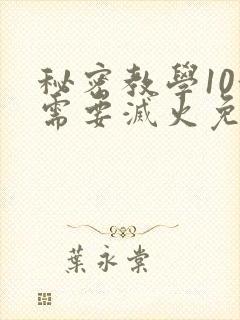 秘密教學10
需要滅火免
葉永棠